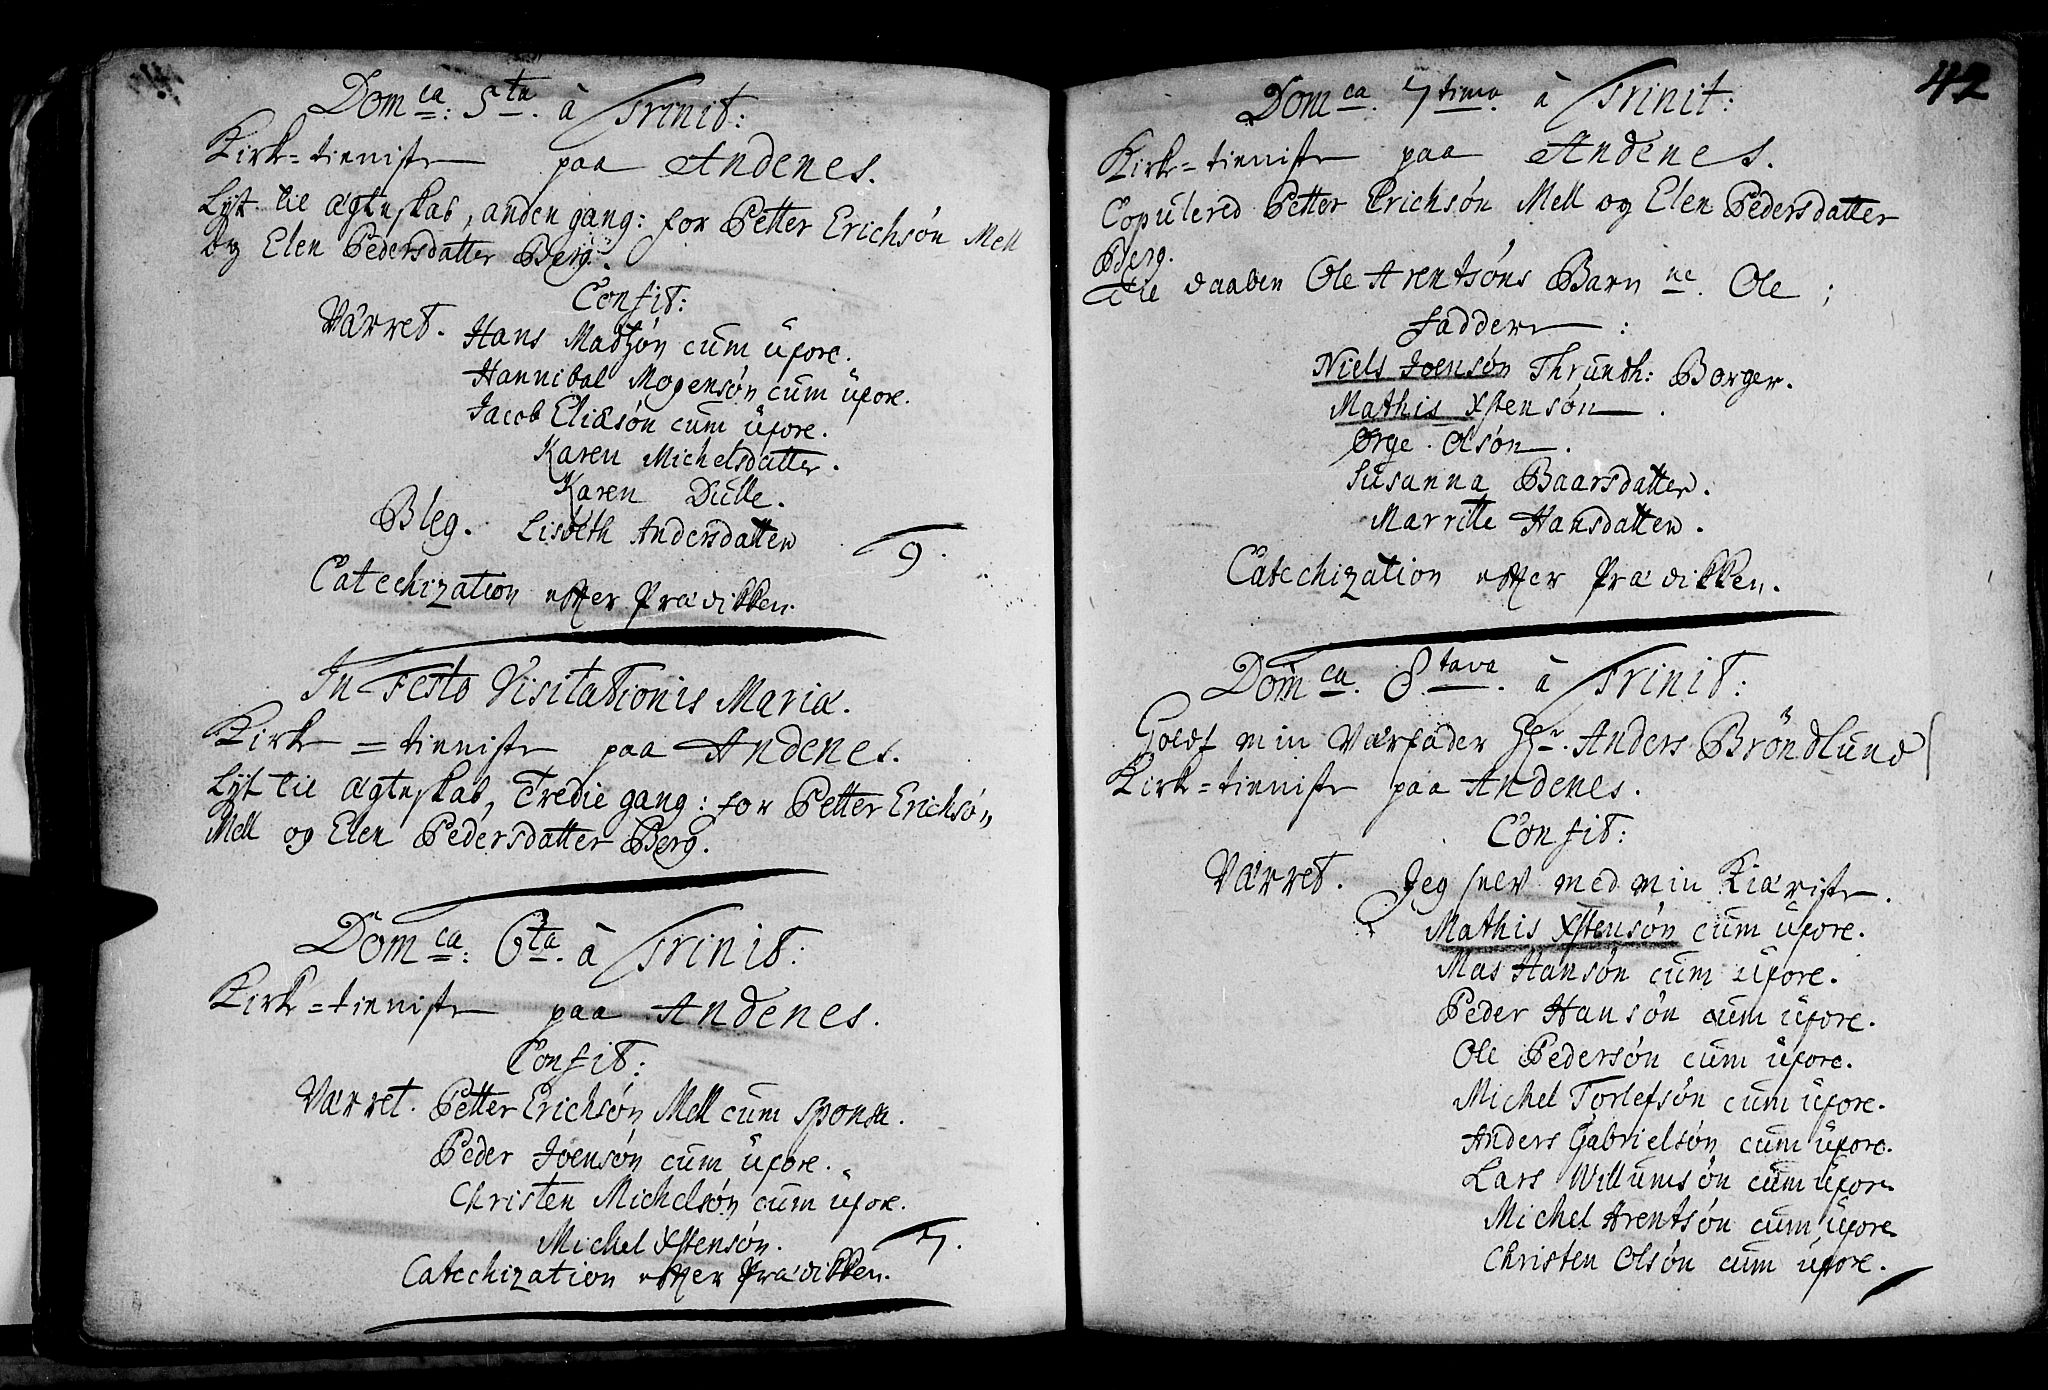 Dom ca: 5 ta. à Trinit:
Kirk=tienniste paa Andenes.
Lyst til Ægteskab, anden gang: for Petter Erichsøn Mell
og Elen Pedersdatter Berg.
Confit:
Værret. Hans Madzøn cum uxore.
Hannibal Mogensøn cum uxore.
Jacob Eliæsøn cum uxore.
Karen Michelsdatter.
Karen Dulle.
Bleg. Lisbeth Andersdatter 9.
Catechization efter Prædikken.
In Festo Visitationis Mariæ.
Kirk=tienniste paa Andenes.
Lyst til Ægteskab, Tredie gang: for Petter Erichsøn
Mell og Elen Pedersdatter Berg.
Dom ca: 6 ta. à Trinit:
Kirk=tienniste paa Andenes.
Confit:
Værret. Petter Erichsøn Mell cum sponsa.
Peder Joensøn cum uxore.
Christen Michelsøn cum uxore.
Michel Xstensøn. 7.
Catechization efter Prædikken.
42
Dom ca. 7 tima. à Trinit:
Kirk=tienniste paa Andenes.
Copulered Petter Erichsøn Mell og Elen Pedersdatter
Berg.
Til daaben Ole Arentsøns Barn ne. Ole;
Faddere:
Niels Joensøn Thrundh: Borger.
Mathis Xstensøn.
Ørge Olsøn.
Susanna Baarsdatter.
Marritte Hansdatter.
Catechization efter Prædikken.
Dom ca. 8 tava. à Trinit:
Holdt min Værfader Hr. Anders Bröndlund
Kirk=tienniste paa Andenes.
Confit:
Værret. Jeg selv med min Kiæriste.
Mathis Xstensøn cum uxore.
Mas Hansøn cum uxore.
Peder Hansøn cum uxore.
Ole Pedersøn cum uxore.
Michel Torlefsøn cum uxore.
Anders Gabrielsøn cum uxore.
Lars Willumsøn cum uxore
Michel Arentsøn cum uxore
Christen Olsøn cum uxore.